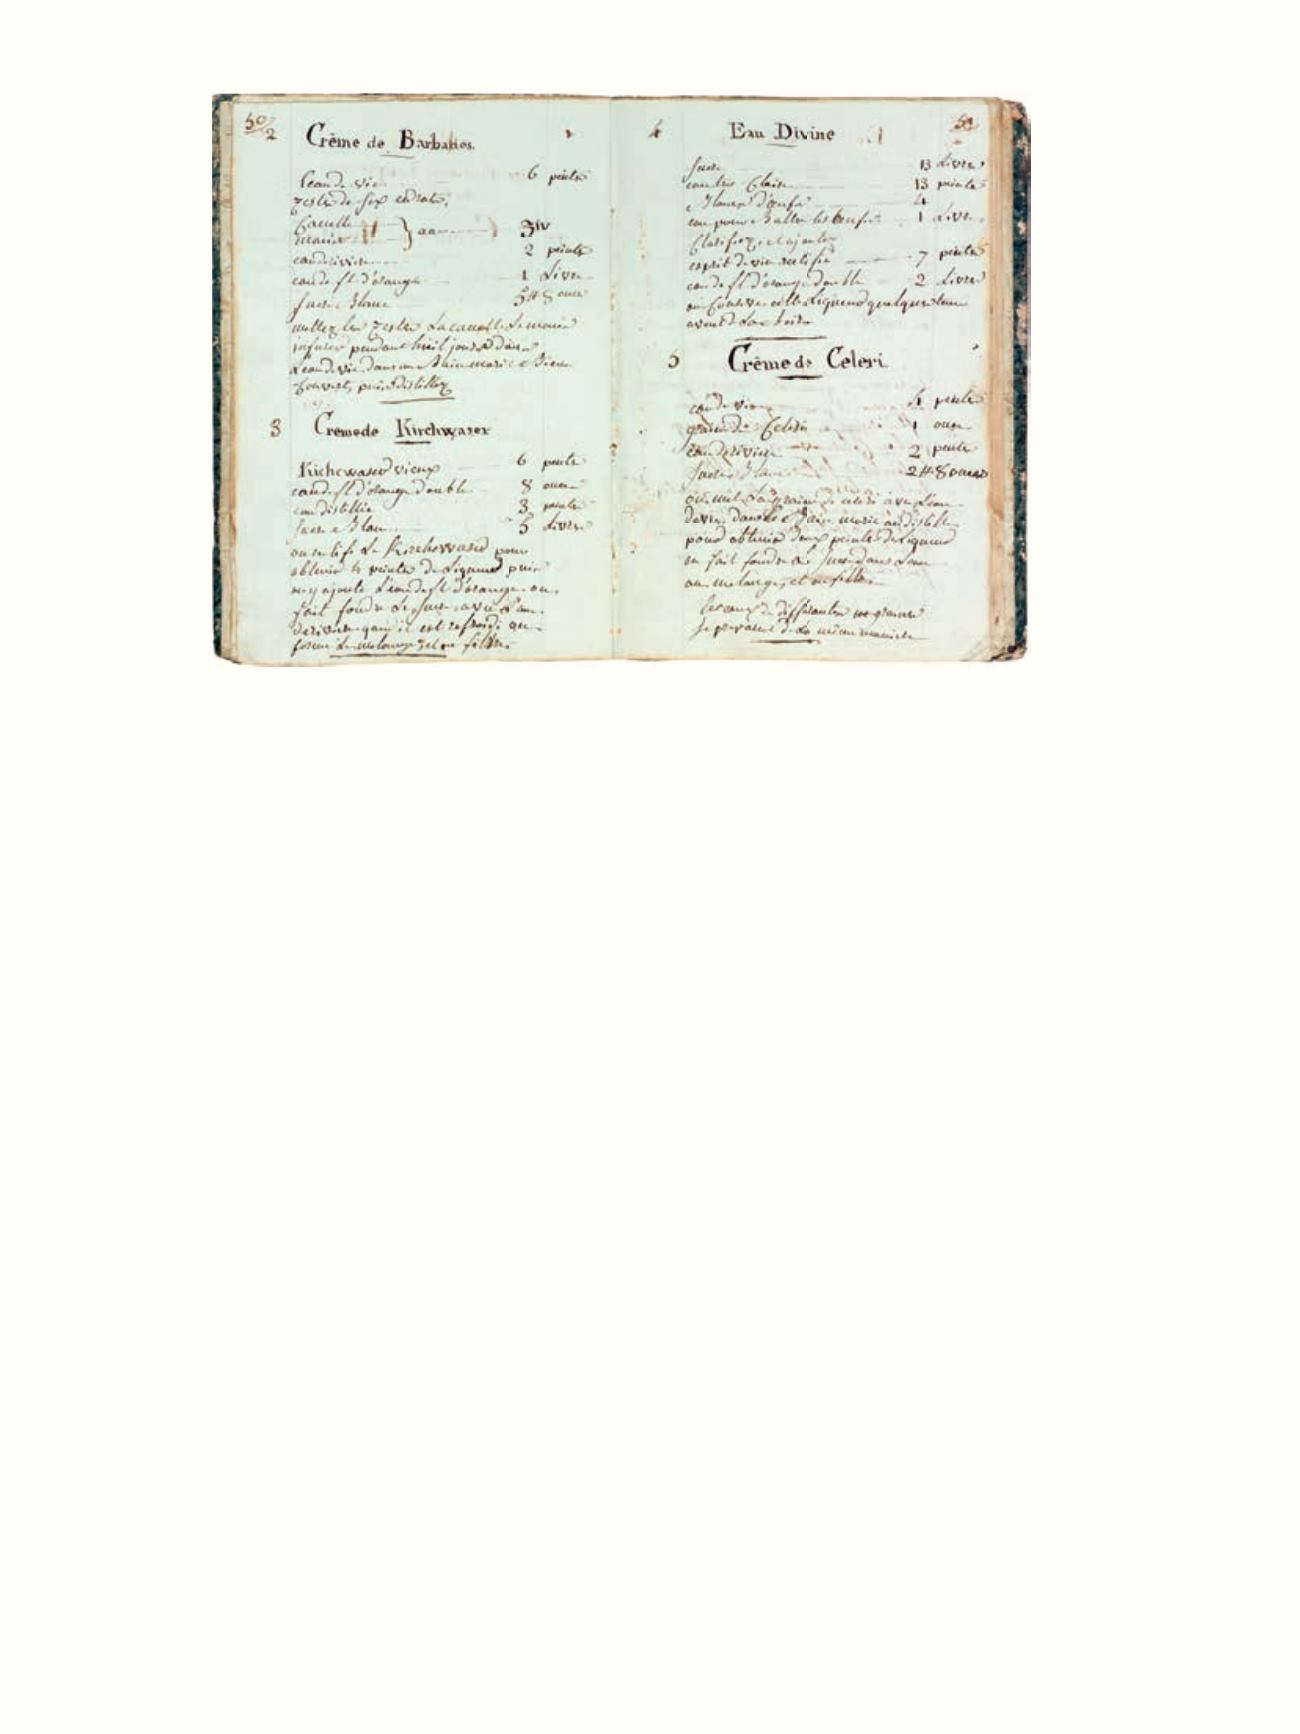 50
2 Crême de Barbades.
l'eau de vie 6 peinte
zeste de six cedrats,
Canelle
macis } aa ʒiv
eau de riviere 2 peinte
eau de fl d'orange 1 Livre
sucre Blanc 5# 8 once
mettez les zestes La canelle Le macis
infuser pendant huit jours dans
L'eau de vie dans un Bain marie Bien
couvert, puis distillez
3 Creme de Kirchwaser
Kirchewaser vieux 6 peinte
eau de fl d'orange double 8 once
eau distillée 3 peinte
sucre Blanc 5 Livre
on rectifie Le Kirchewaser pour
obtenir 4 peinte de Liqueur puis
on y ajoute L'eau de fl d'orange on
fait fondre Le sucre avec L'eau
de riviere quan il est refroidi on
forme Le melange et on filtre
4 Eau Divine 51
sucre 13 Livre
eau tres Claire 13 peinte
Blancs d'œufs 4
eau pour Battre les œufs 1 Livre
Clarifiez, et ajoutez
esprit de vin rectifié 7 peinte
eau de fl d'orange double 2 Livre
on Conserve cette Liqueur quelque tems
avant de La boire
5 Crême de Celeri
eau de vie 4 peinte
graine de Celeri 1 once
eau de riviere 2 peinte
sucre Blanc 2# 8 onces
on met La graine de celeri avec L'eau
de vie dans le Bain marie on distille
pour obtenir deux peinte de Liqueur
on fait fondre Le sucre dans L'eau
on melange, et on filtre
Les eaux de differantes graines
se prepare de La même maniere